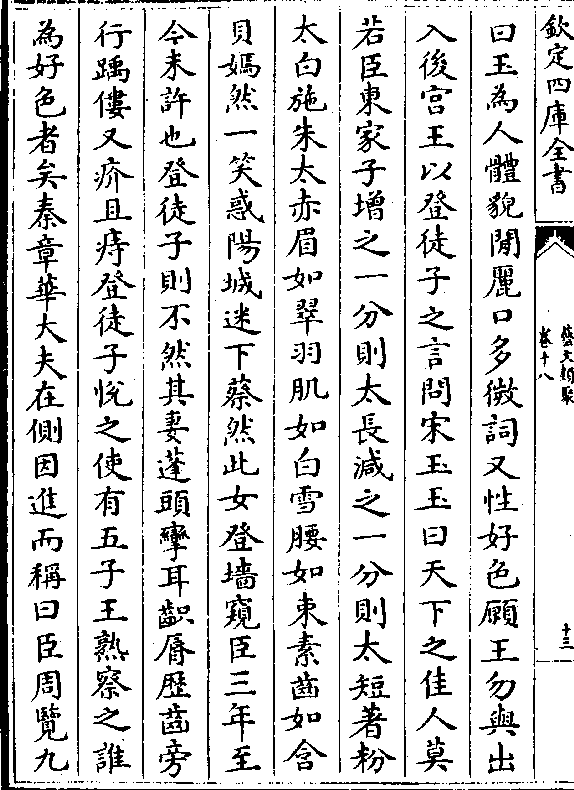 欽定四庫全書
藝文類聚
卷十八
十三
曰玉為人體貌閒麗口多微詞又性好色願王勿與出
入後宫王以登徒子之言問宋玉玉曰天下之佳人莫
若臣東家子增之一分則太長減之一分則太短著粉
太白施朱太赤眉如翠羽肌如白雪腰如束素齒如含
貝嫣然一笑惑陽城迷下蔡然此女登墻窺臣三年至
今未許也登徒子則不然其妻蓬頭攣耳齞脣歴齒旁
行踽僂又疥且痔登徒子悅之使有五子王熟察之誰
為好色者矣秦章華大夫在側因進而稱曰臣周覽九